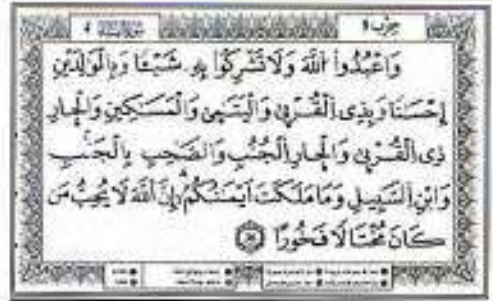 سورة النساء 4 حزب 9
وَاعْبُدُواْ اللَّهَ وَلَا تُشْرِكُواْ بِهِ شَيْئًا وَبِالْوَالِدَيْنِ
إِحْسَنًا وَبِذِى الْقُرْبَى وَالْيَتَمَى وَالْمَسَكِينِ وَالْجَارِ
ذِى الْقُرْبَى وَالْجَارِ الْجُنُبِ وَالصَّاحِبِ بِالْجَنبِ
وَابْنِ السَّبِيلِ وَمَا مَلَكَتْ أَيْمَنُكُمْ إِنَّ اللَّهَ لَا يُحِبُّ مَن
كَانَ مُخْتَالًا فَخُورًا